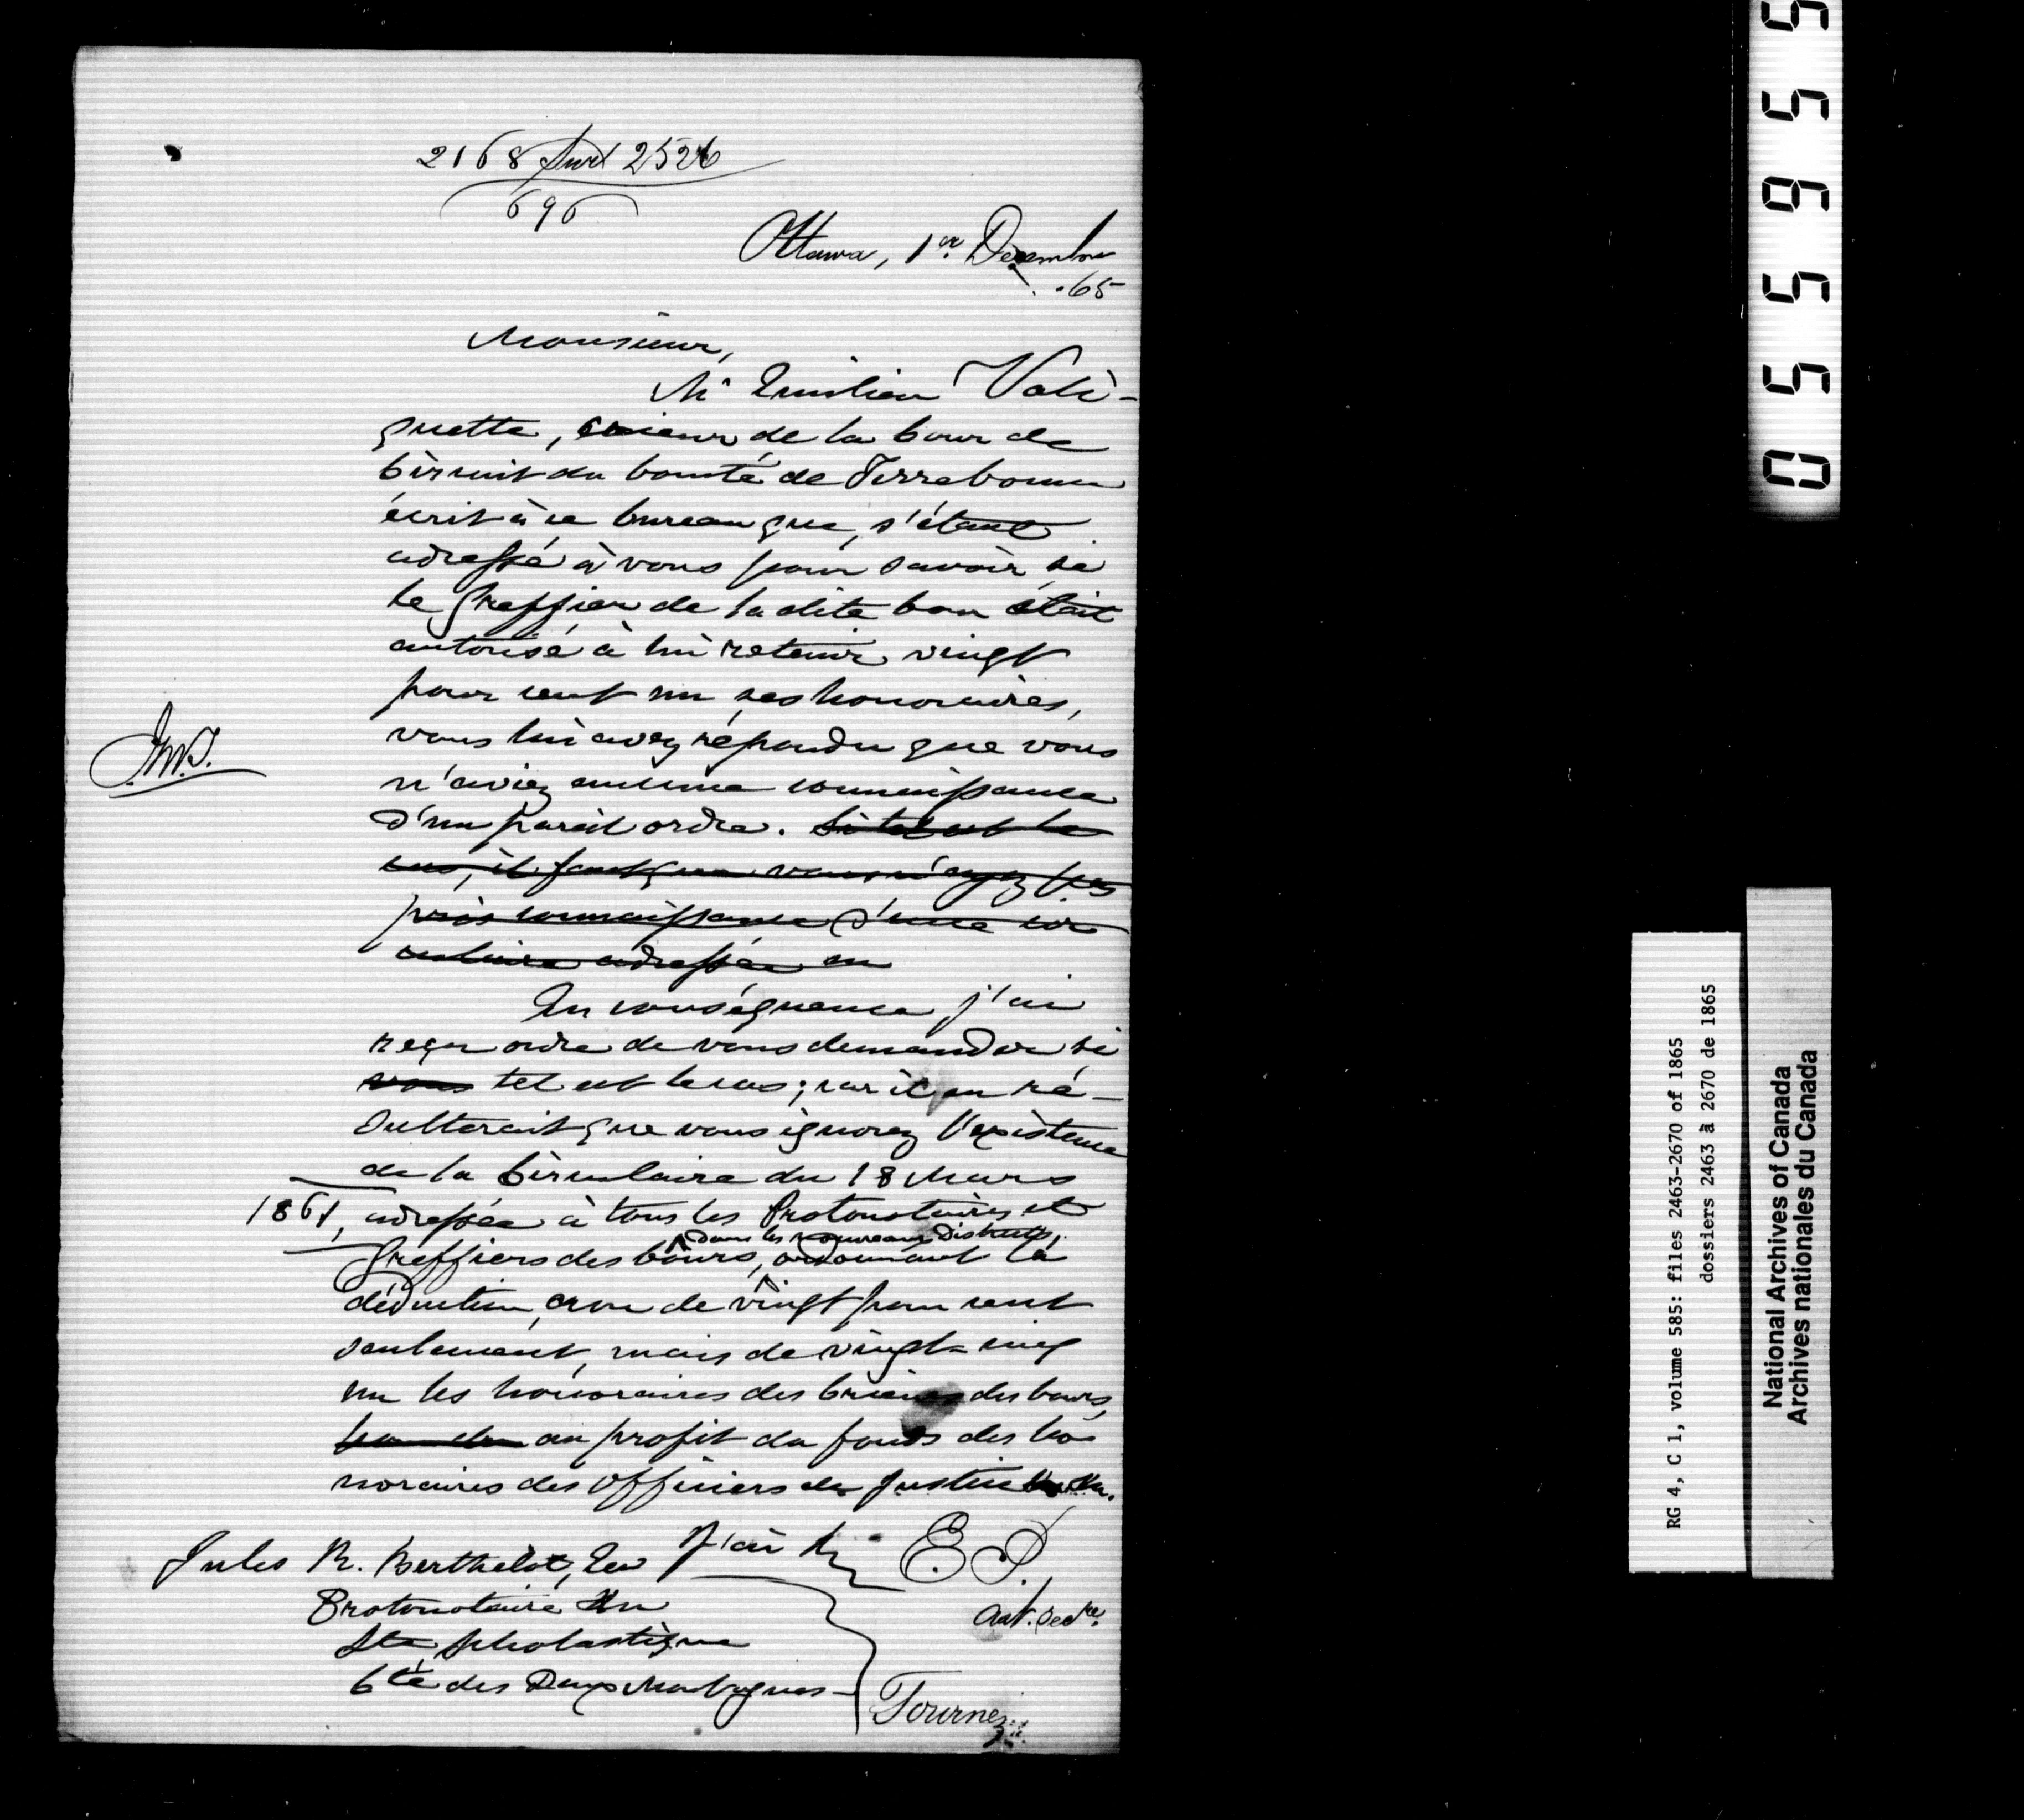 2168 Surl 2526
696
Ottawa, 1er. Decembre
.65
Monsieur,
Mr Emilien Vali-
quette, crieur de la Cour de
Circuit du Comté de Terrebonne
écrit à ce bureau que, s'étant
adressé à vous pour savoir si
le Greffier de la dite Cour était
autorisé à lui retenir vingt
pour cent sur ses honoraires,
vous lui avez répondu que vous
n'aviez aucune connaissance
d'un pareil ordre. Si tel est le
cas, il faut que vous n'ayez pas
pris connaissance d'une cir
culaire adressée en
En conséquence j'ai
reçu ordre de vous demander si
vous tel est le cas; car il en ré-
sulterait que vous ignorez l'existence
de la Circulaire du 18 Mars
1861, adressée à tous les Protonotaires et
dans les nouveaux Districts,
Greffiers des Cours, ordonnant la
déduction, non de vingt pour cent
seulement, mais de vingt-cinq
sur les honoraires des Crieurs des Cours,
au profit du fonds des ho
noraires des officiers de Justice
J'ai E.P.
Jules R. Berthelot, Ecr
Protonotaire
Asst. Secre.
Ste Scholastique
Cté des Deux Montagnes-
Tournez
0559655
RG 4, C 1, volume 585: files 2463-2670 of 1865
dossiers 2463 à 2670 de 1865
National Archives of Canada
Archives nationales du Canada